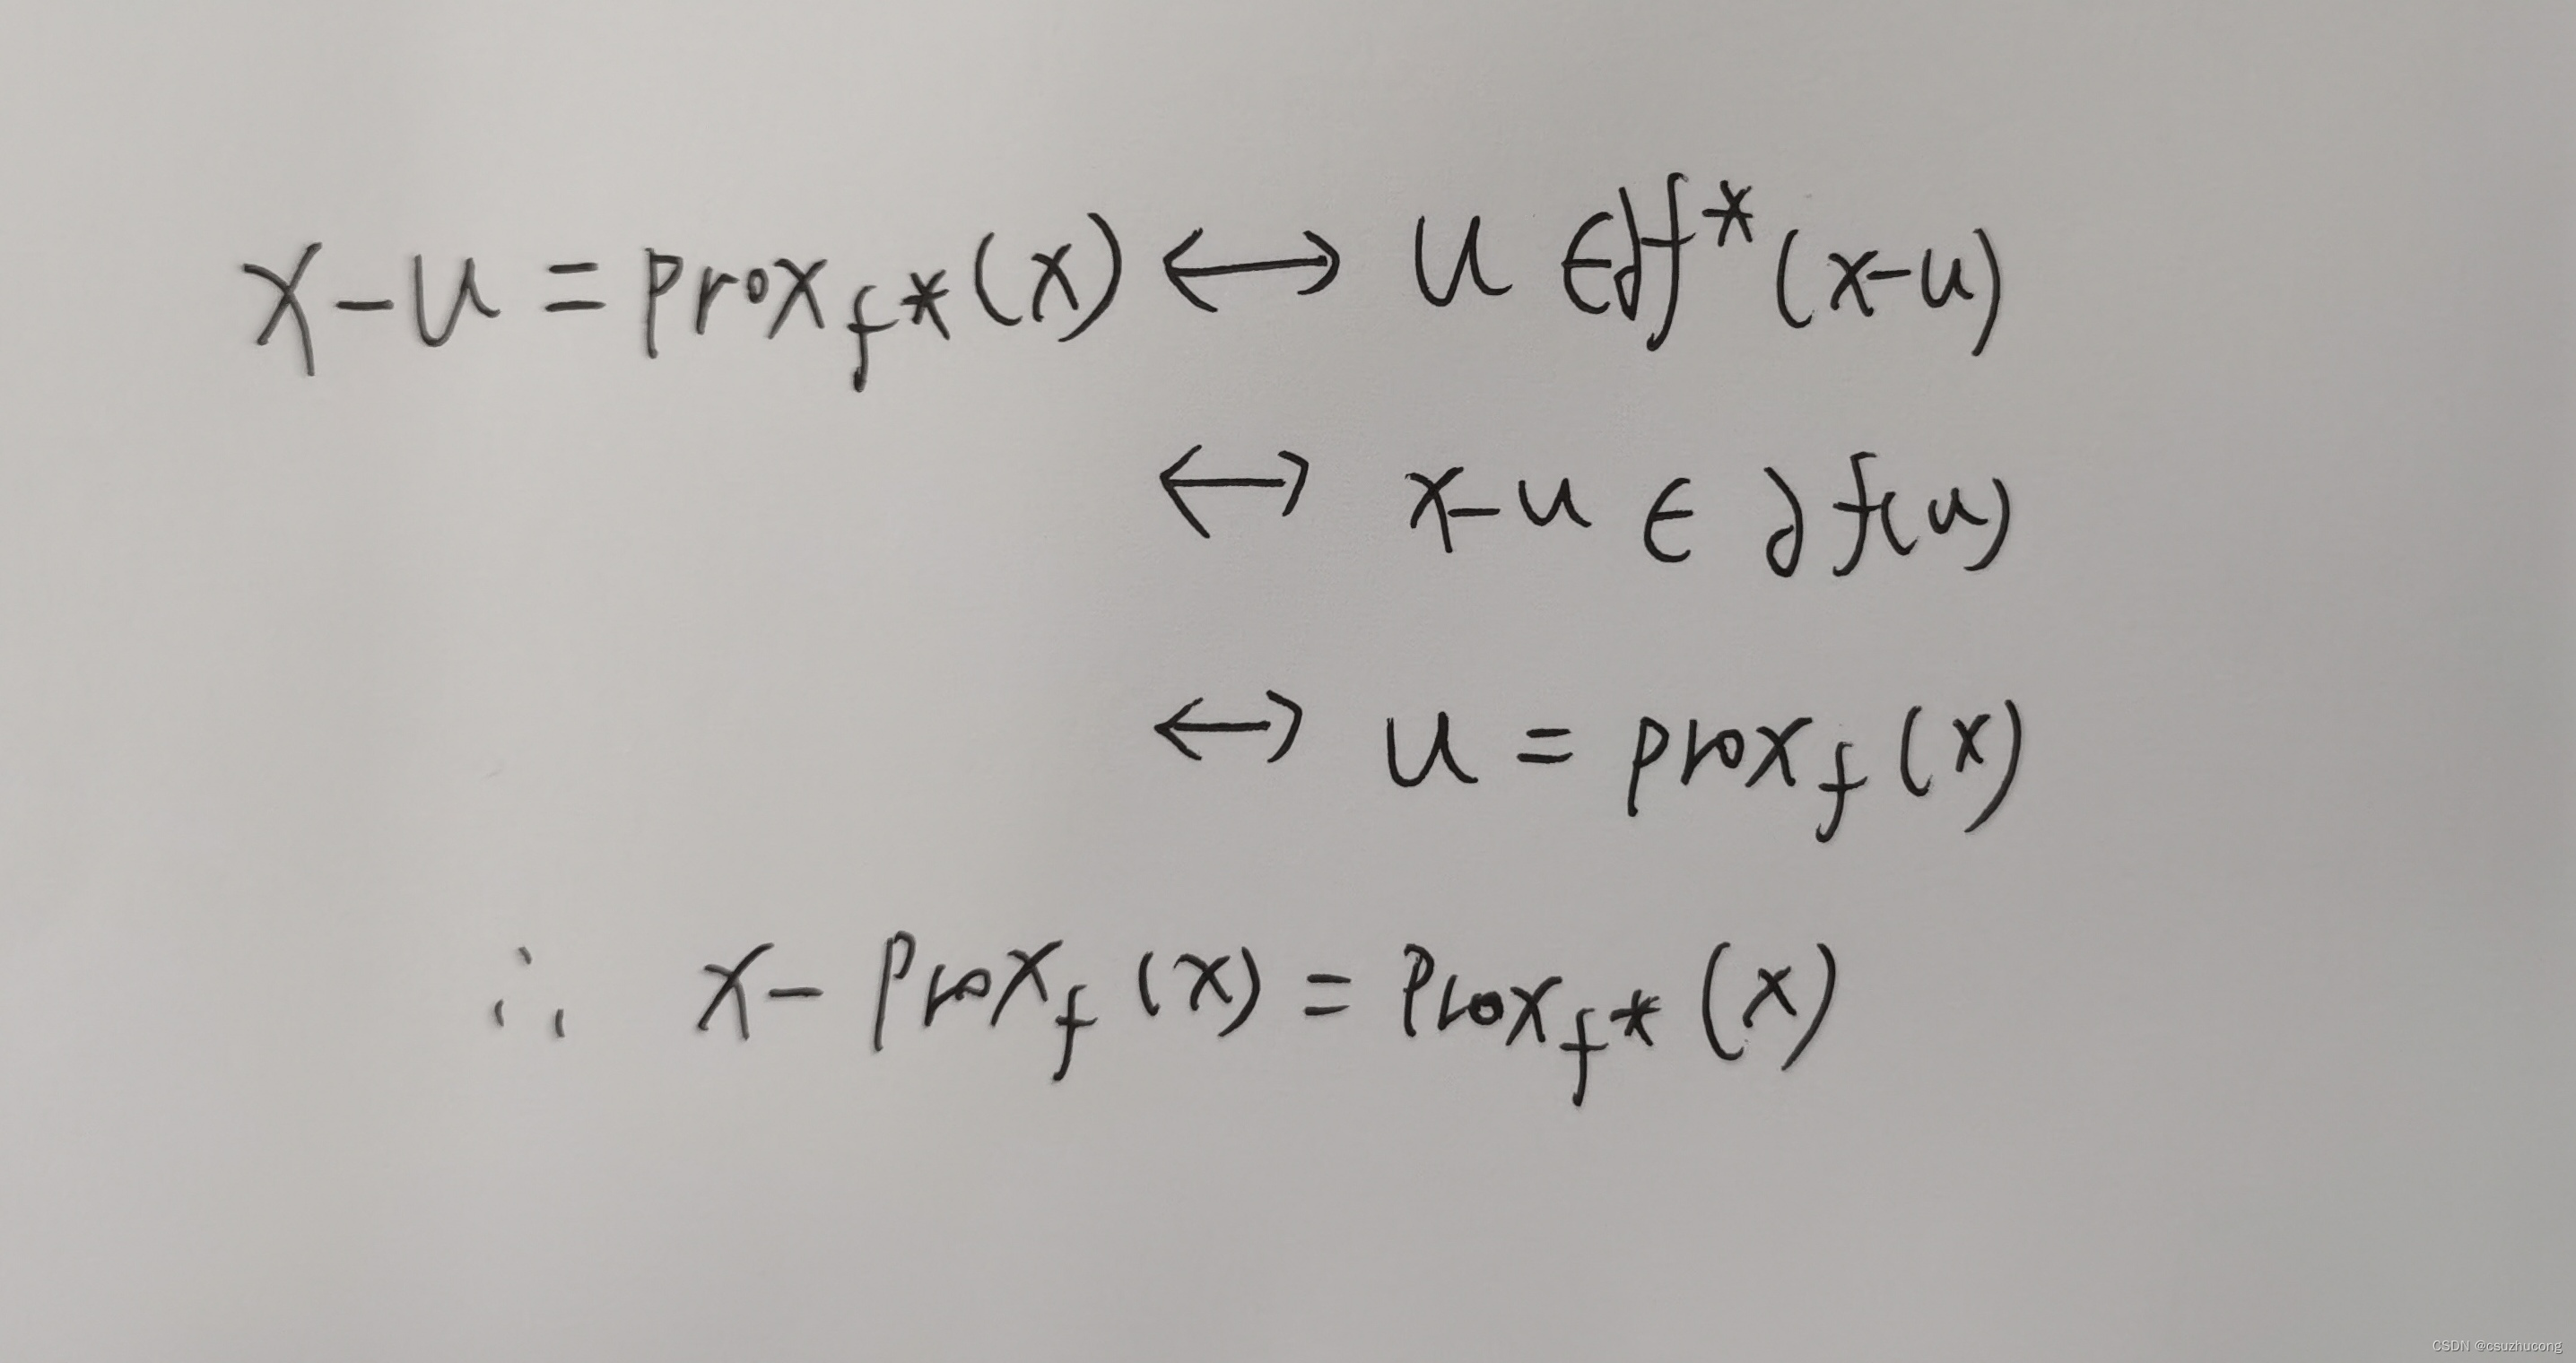 x-u = prox_{f*}(x) ⟷ u ∈ ∂f*(x-u)
⟷ x-u ∈ ∂f(u)
⟷ u = prox_f(x)
∴ x - prox_f(x) = prox_{f*}(x)
CSDN @csuzhucong